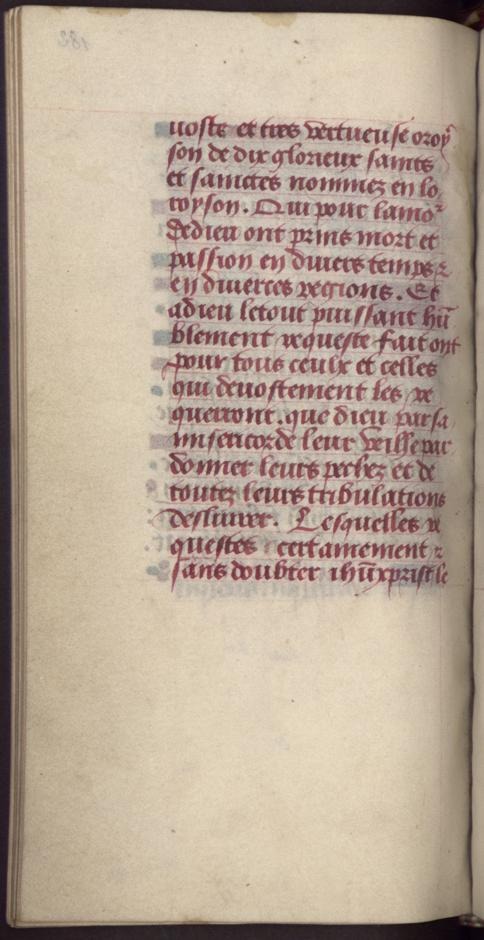 uoste et tres vertueuse oroy
son de dix glorieux saints
et sainctes nommez en lo
royson. Qui pour lamor
dedieu ont prins mort et
passion en diuers temps ⁊
en diuerces regions. Et
adieu letout puissant hū
blement requeste fait ont
pour tous ceulx et celles
qui deuostement les re
querront. que dieu par sa
misericorde leur veille par
donner leurs pechez et de
toutez leurs tribulations
desliurer. Lesquelles re
questes certainement ⁊
sans doubter ihūxprist le